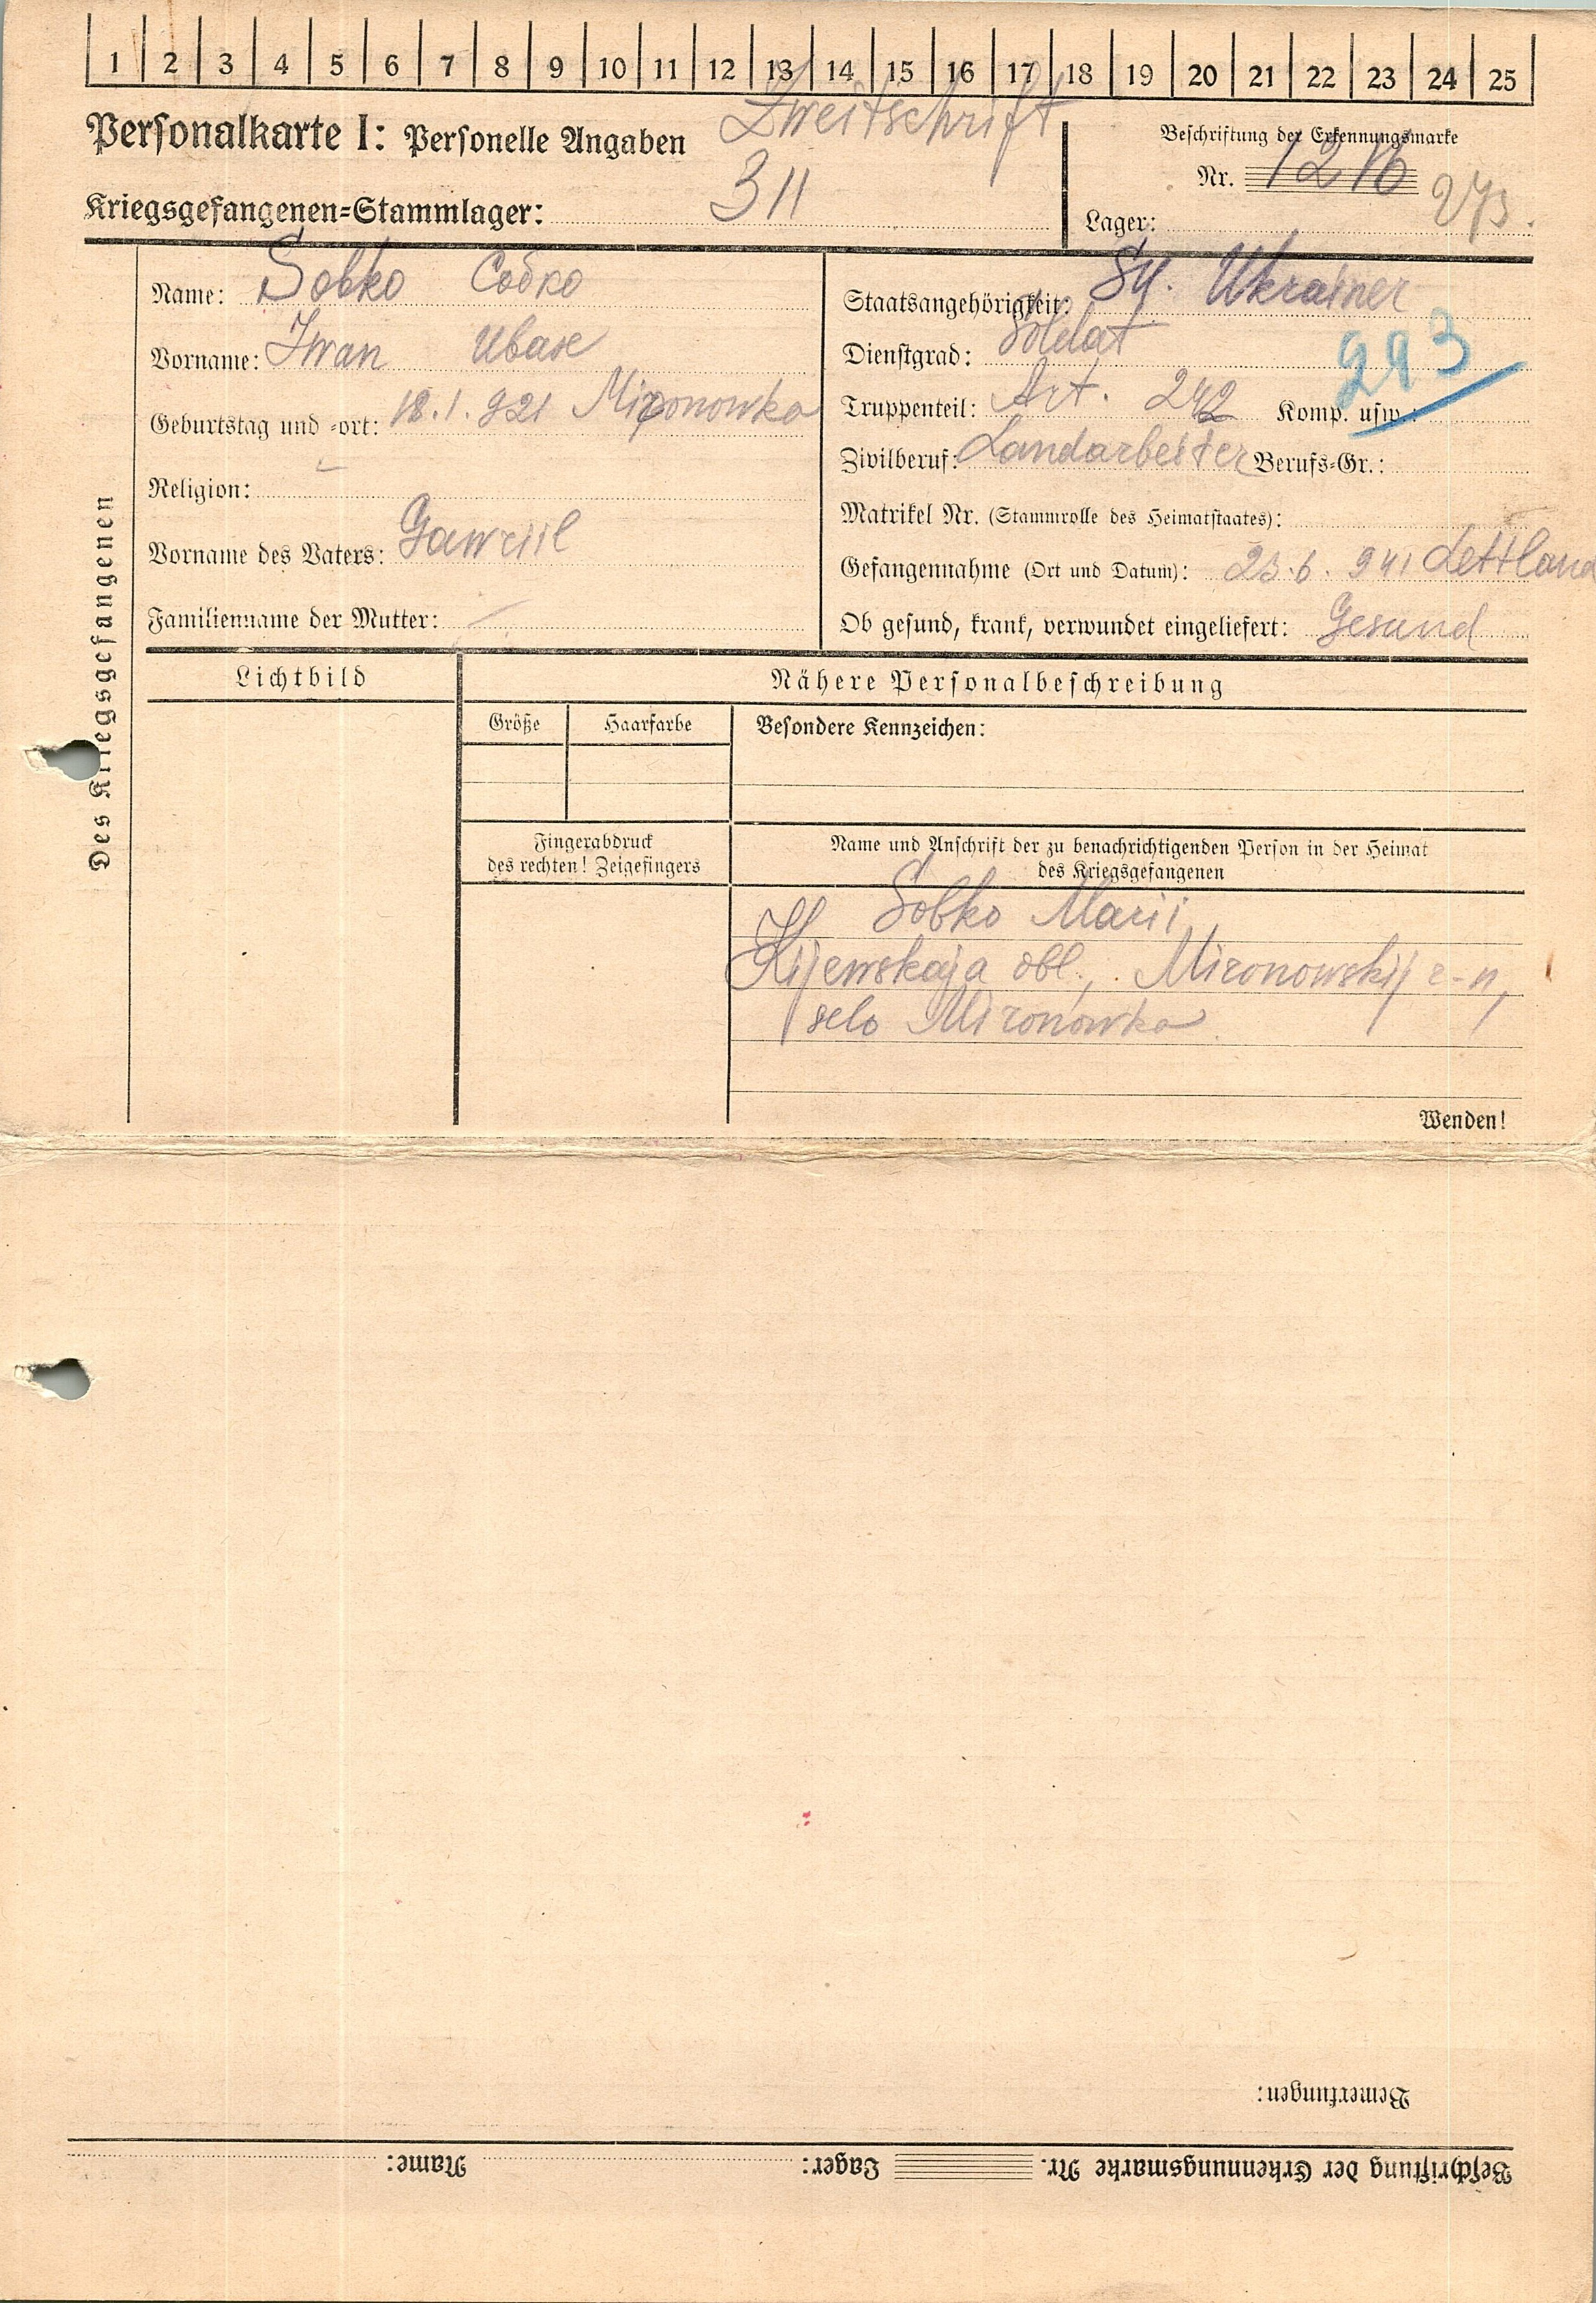 1 2 3 4 5 6 7 8 9 10 11 12 13 14 15 16 17 18 19 20 21 22 23 24 25
Personalkarte I: Personelle Angaben Zweitschrift
Kriegsgefangenen=Stammlager: 311
Beschriftung der Erkennungsmarke
Nr. 12716
Lager: 273.
Des Kriegsgefangenen
Name: Sobko Собко
Vorname: Iwan Иван
Geburtstag und =ort: 18.1.921 Mironowka
Religion: -
Vorname des Vaters: Gawriil
Familienname der Mutter: -
Staatsangehörigkeit: SU. Ukrainer
Dienstgrad: Soldat
293
Truppenteil: Art. 242 Komp. usw.:
Zivilberuf: Landarbeiter Berufs=Gr.:
Matrikel Nr. (Stammrolle des Heimatstaates):
Gefangennahme (Ort und Datum): 23.6.941 Lettland
Ob gesund, krank, verwundet eingeliefert: Gesund
Lichtbild
Nähere Personalbeschreibung
Größe Haarfarbe Besondere Kennzeichen:
Fingerabdruck
des rechten! Zeigefingers
Name und Anschrift der zu benachrichtigenden Person in der Heimat
des Kriegsgefangenen
Sobko Marii,
Kijewskaja obl., Mironowskij r-n,
selo Mironowka
Wenden!
Bemerkungen:
Beschriftung der Erkennungsmarke Nr. Lager: Name: